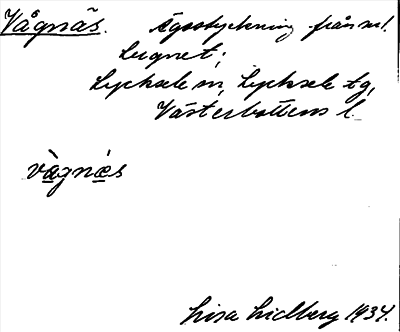 Vågnäs. Ägostyckning från nr 1
Lugnet;
Lycksele sn, Lycksele tg,
Västerbottens l.
vàgnæ̀s
Lisa Lidberg 1934.